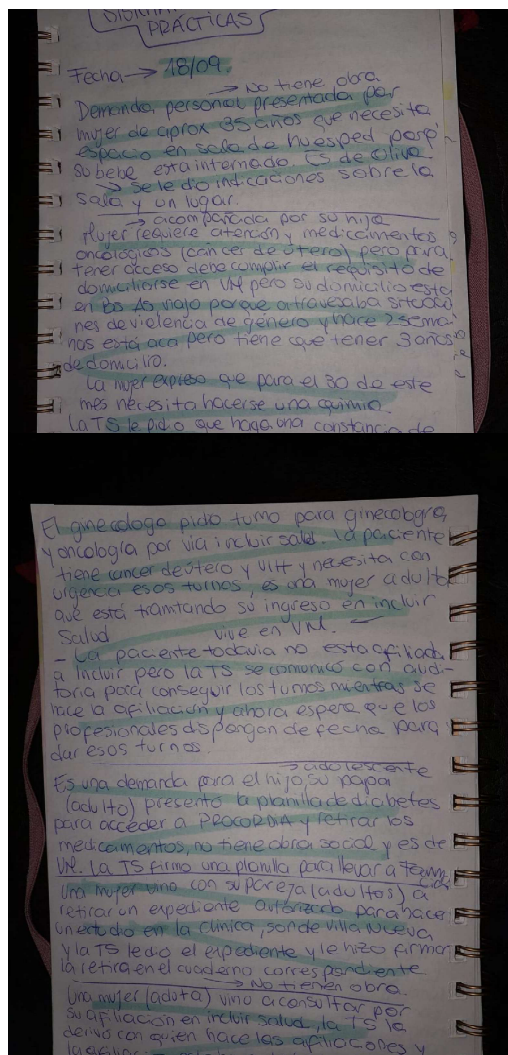 PRÁCTICAS
Fecha → 18/09.
→ No tiene obra
Demanda personal presentada por
mujer de aprox 35 años que necesita
espacio en sala de huesped porq'
su bebe esta internado. Es de Oliva.
→ Se le dio indicaciones sobre la
sala y un lugar.
→ acompañada por su hija
Mujer requiere atención y medicamentos
oncologicos (cáncer de útero) pero para
tener acceso debe cumplir el requisito de
domiciliarse en VM pero su domicilio esta
en Bs As viajo porque atravesaba situacio
nes de violencia de género y hace 2 sema
nas está acá pero tiene que tener 3 años
de domicilio.
La mujer expreso que para el 30 de este
mes necesita hacerse una quimio.
La TS le pidio que haga una constancia de
El ginecologo pidio turno para ginecología
y oncología por via incluir salud. La paciente
tiene cancer de útero y VIH y necesita con
urgencia esos turnos, es una mujer adulta
que está tramitando su ingreso en incluir
Salud
vive en VM.
- La paciente todavia no esta afiliada
a Incluir pero la TS se comunicó con audi-
toria para conseguir los turnos mientras se
hace la afiliación y ahora espera que los
profesionales dispongan de fecha para
dar esos turnos.
→ adolescente
Es una demanda para el hijo, su papá
(adulto) presentó la planilla de diabetes
para acceder a PROCORDIA y retirar los
medicamentos, no tiene obra social y es de
VM. La TS firmo una planilla para llevar a
Una mujer vino con su pareja (adultos) a
retirar un expediente autorizado para hacer
un estudio en la clínica, son de Villa Nueva
y la TS le dio el expediente y le hizo firmar
la retira en el cuaderno correspondiente
→ No tienen obra.
Una mujer (adulta) vino a consultar por
su afiliación en incluir salud, la TS la
derivó con quien hace las afiliaciones y